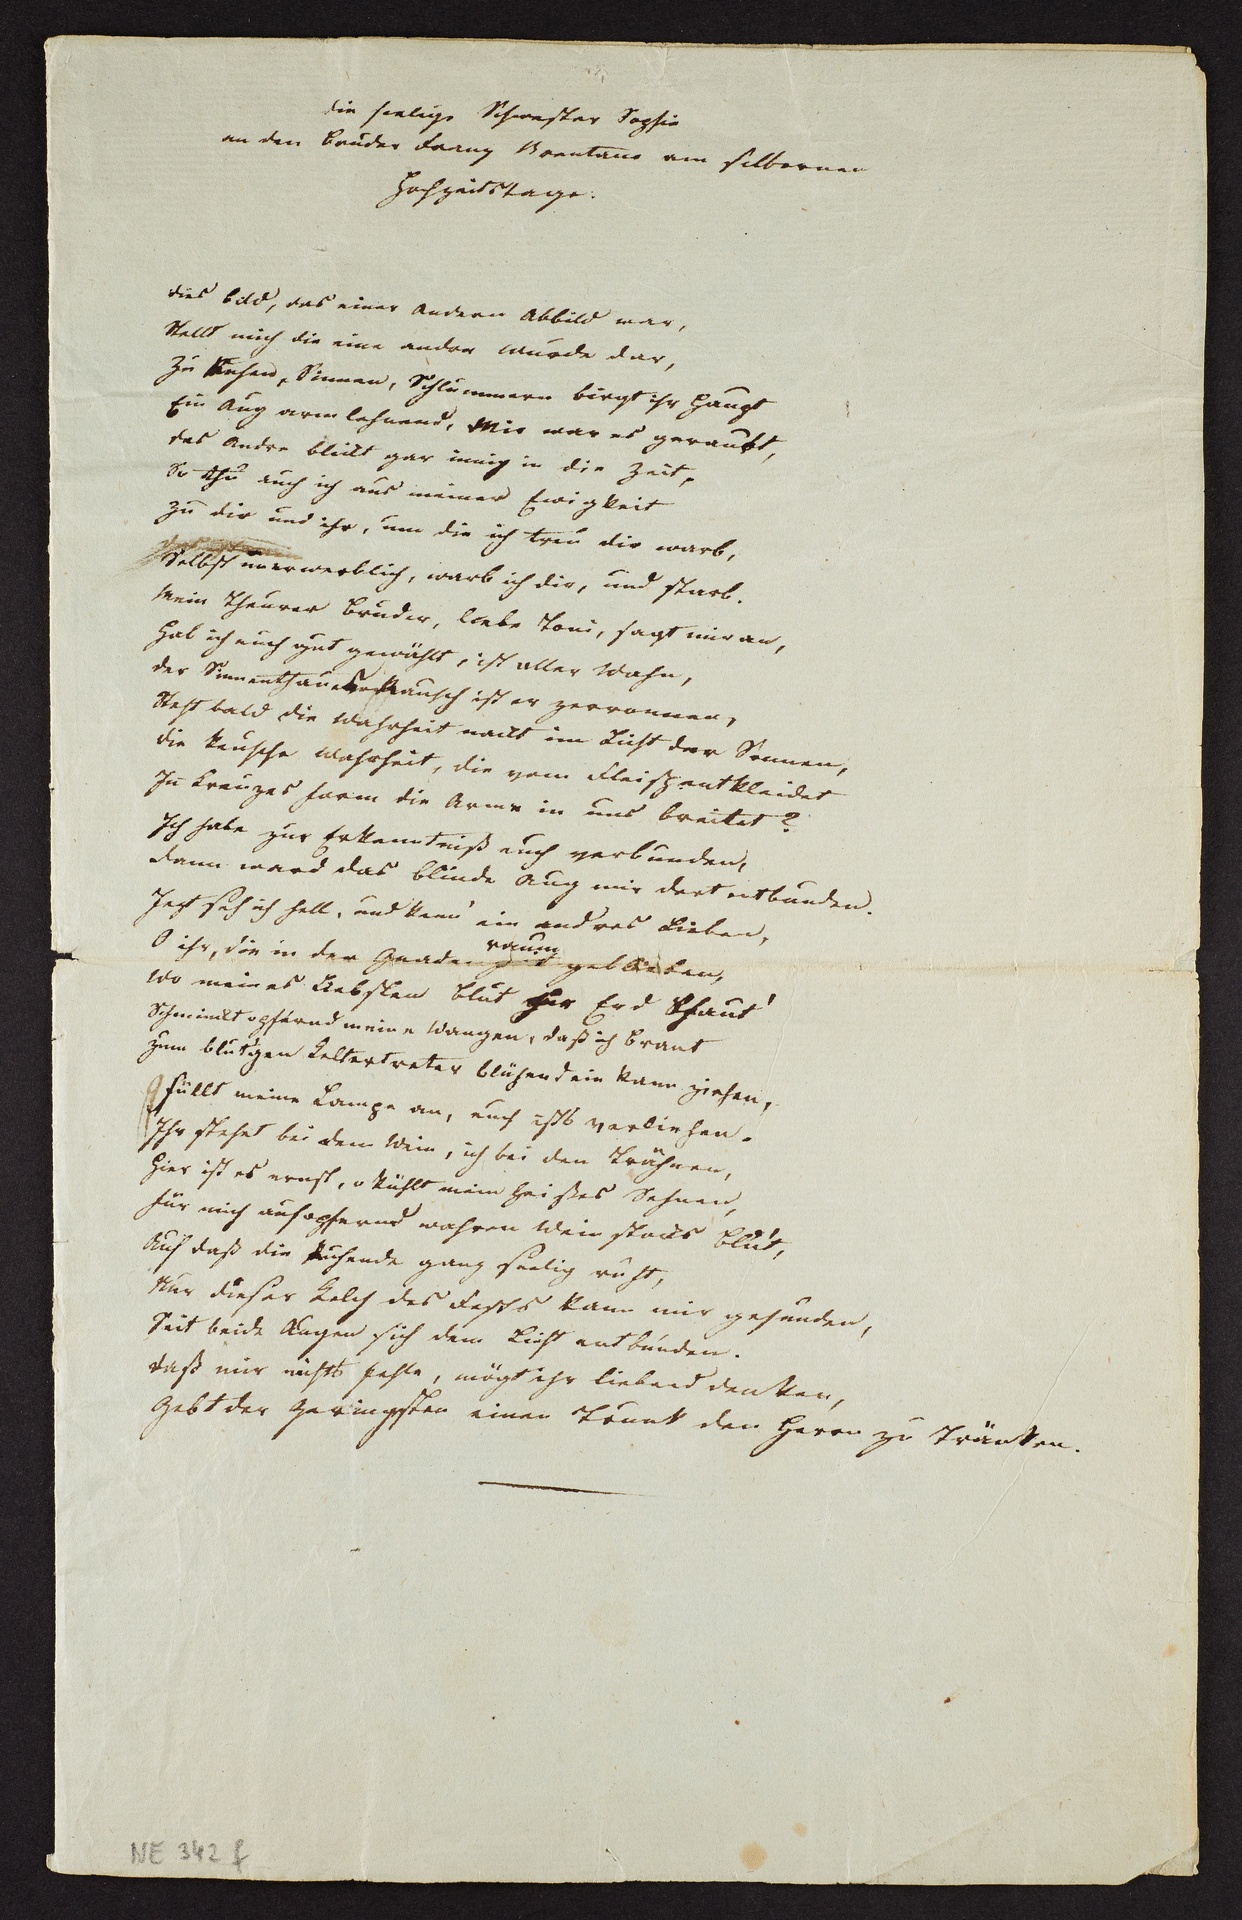 die seelige Schwester Sophie
an den Bruder Franz Brentano am silbernen
Hochzeitstage.
Dies Bild, das einer Andern Abbild war,
Stellt mich die eine andre wurde dar,
Zu Ruhen, Sinnen, Schlummern birgt ihr Haupt
Ein Aug armlehnend, Mir war es geraubt,
das Andre blickt gar innig in die Zeit,
So thu auch ich aus meiner Ewigkeit
Zu dir und ihr, um die ich treu dir warb,
Selbst unerwerblich, warb ich dir, und starb.
Mein Theurer Bruder, liebe Toni, sagt mir an,
Hab ich euch gut gewählt, ist aller Wahn,
der Sinnenthaues Rausch ist er zerronnen,
Steht bald die Wahrheit nackt im Licht der Sonnen,
die keusche Wahrheit, die vom Fleisch entkleidet
In Kreuzes form die Arme in uns breitet?
Ich habe zur Erkenntniß euch verbunden,
dann ward das blinde Aug mir dort entbunden.
Jezt seh ich hell, und kenn' ein andres Lieben,
O ihr, die in der Gnaden raum geblieben,
Wo meines Liebsten Blut die Erd bethaut'
Schmückt opfernd meine Wangen, daß ich Braut
zum blut'gen Keltertreter blühend ein kann ziehen,
füllt meine Lampe an, euch ists verliehen.
Ihr stehet bei dem Wein, ich bei den Trähnen,
Hier ist es ernst, o kühlt mein heißes Sehnen,
für mich aufopfernd wahren Weinstocks Blut,
Auf daß die Ruhende ganz seelig ruht,
Nur dieser Kelch des Festes kann mir gesunden,
Seit beide Augen sich dem Licht entbunden.
daß mir nichts fehle, mögt ihr liebend denken,
Gebt der Geringsten einen Trunk den Herrn zu Tränken.
NE 342 f